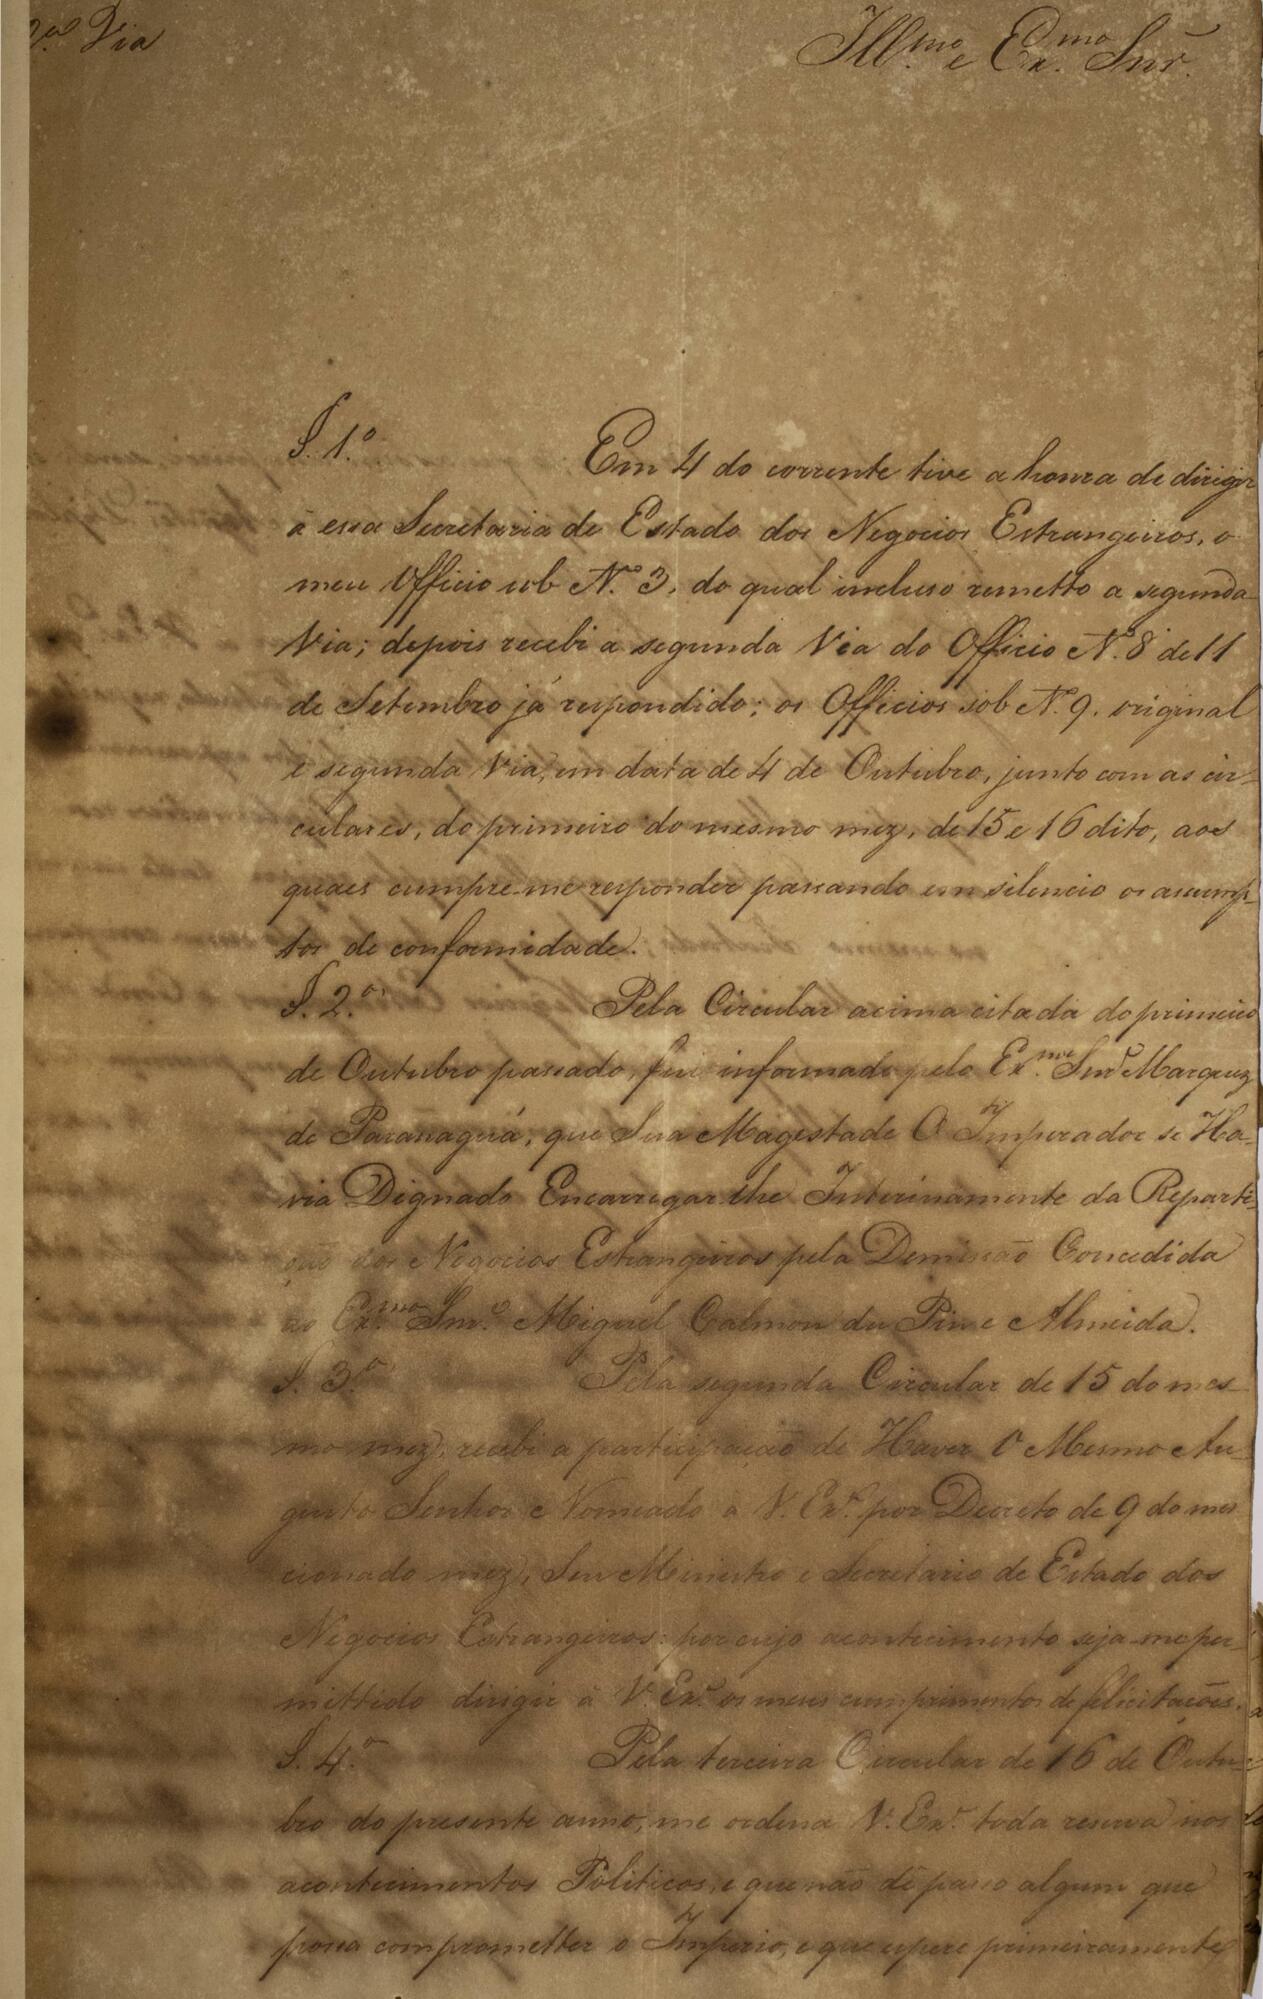 2.ª Via
Ill.mo e Ex.mo Snr.
§. 1.º Em 4 do corrente tive a honra de dirigir
á essa Secretaria de Estado dos Negocios Estrangeiros, o
meu Officio sob N.º 3, do qual incluso remetto a segunda
Via; depois recebi a segunda Via do Officio N.º 8 de 11
de Setembro já respondido; os Officios sob N.º 9. original
e segunda Via, em data de 4 de Outubro, junto com as cir-
culares, do primeiro do mesmo mez, de 15 e 16 dito, aos
quaes cumpre-me responder passando em silencio os assump-
tos de conformidade.
§. 2.º Pela Circular acima citada do primeiro
de Outubro passado, fui informado pelo Ex.mo Snr. Marquez
de Paranaguá, que Sua Magestade O Imperador se Ha-
via Dignado Encarregar lhe Interinamente da Reparti-
ção dos Negocios Estrangeiros pela Demissão Concedida
ao Ex.mo Snr. Miguel Calmon du Pin e Almeida.
§. 3.º Pela segunda Circular de 15 do mes-
mo mez, recebi a participação de Haver O Mesmo Au-
gusto Senhor Nomeado a V. Ex.ª por Decreto de 9 do men
cionado mez, Seu Ministro e Secretario de Estado dos
Negocios Estrangeiros: por cujo acontecimento seja-me per-
mittido dirigir á V. Ex.ª os meus cumprimentos de felicitações.
§. 4.º Pela terceira Circular de 16 de Outu-
bro do presente anno, me ordena V. Ex.ª toda reserva nos
acontecimentos Politicos, e que não dê passo algum que
possa comprometter o Imperio, e que espere primeiramente